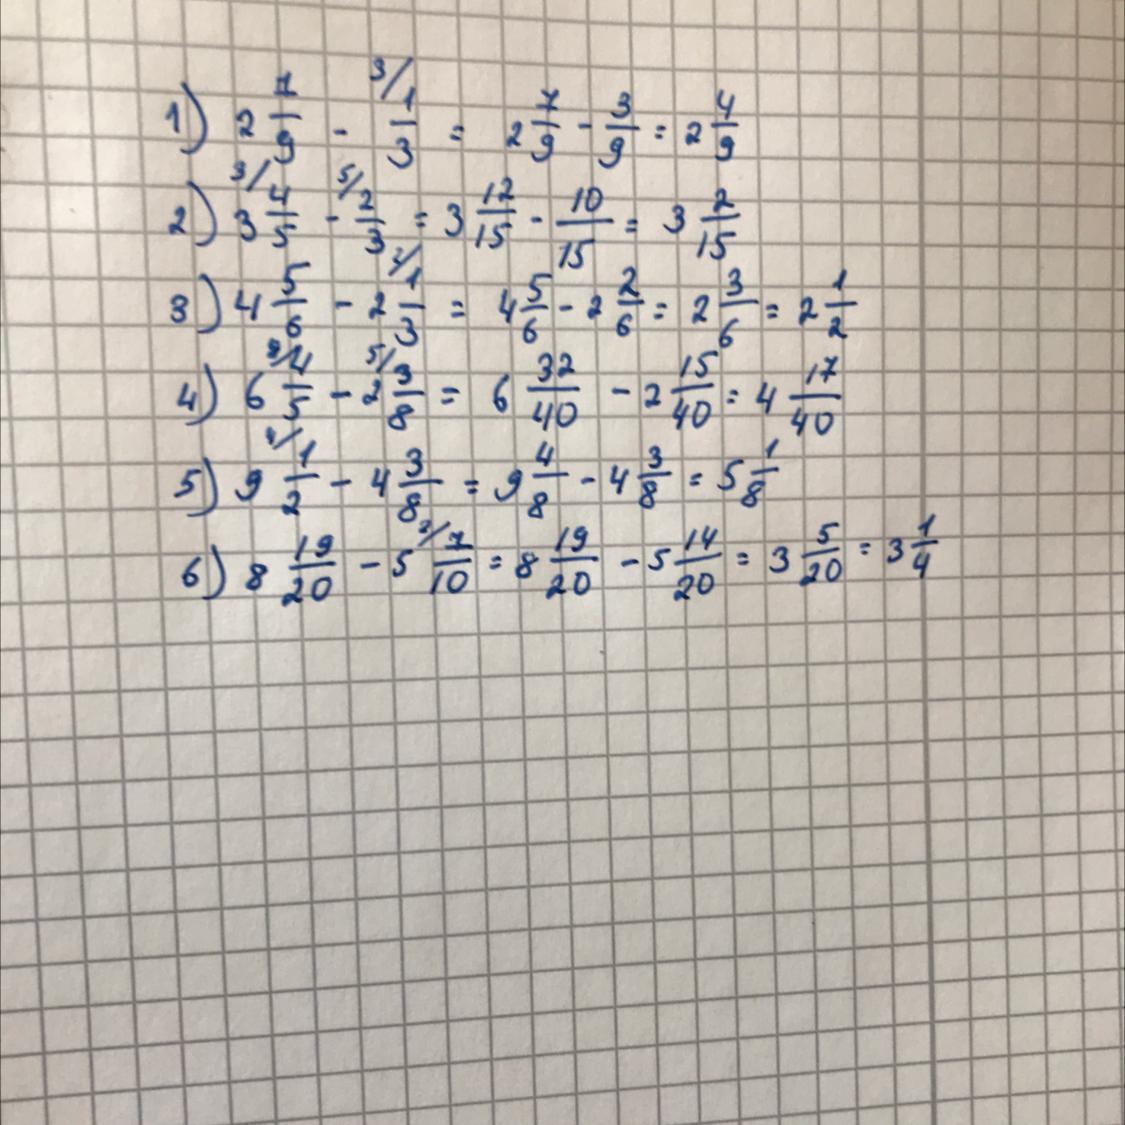 1) 2 7/9 - ³⁄ 1/3 = 2 7/9 - 3/9 = 2 4/9
2) 3 ³⁄ 4/5 - ⁵⁄ 2/3 = 3 12/15 - 10/15 = 3 2/15
3) 4 5/6 - 2 ²⁄ 1/3 = 4 5/6 - 2 2/6 = 2 3/6 = 2 1/2
4) 6 ⁸⁄ 4/5 - 2 ⁵⁄ 3/8 = 6 32/40 - 2 15/40 = 4 17/40
5) 9 ⁴⁄ 1/2 - 4 3/8 = 9 4/8 - 4 3/8 = 5 1/8
6) 8 19/20 - 5 ²⁄ 7/10 = 8 19/20 - 5 14/20 = 3 5/20 = 3 1/4